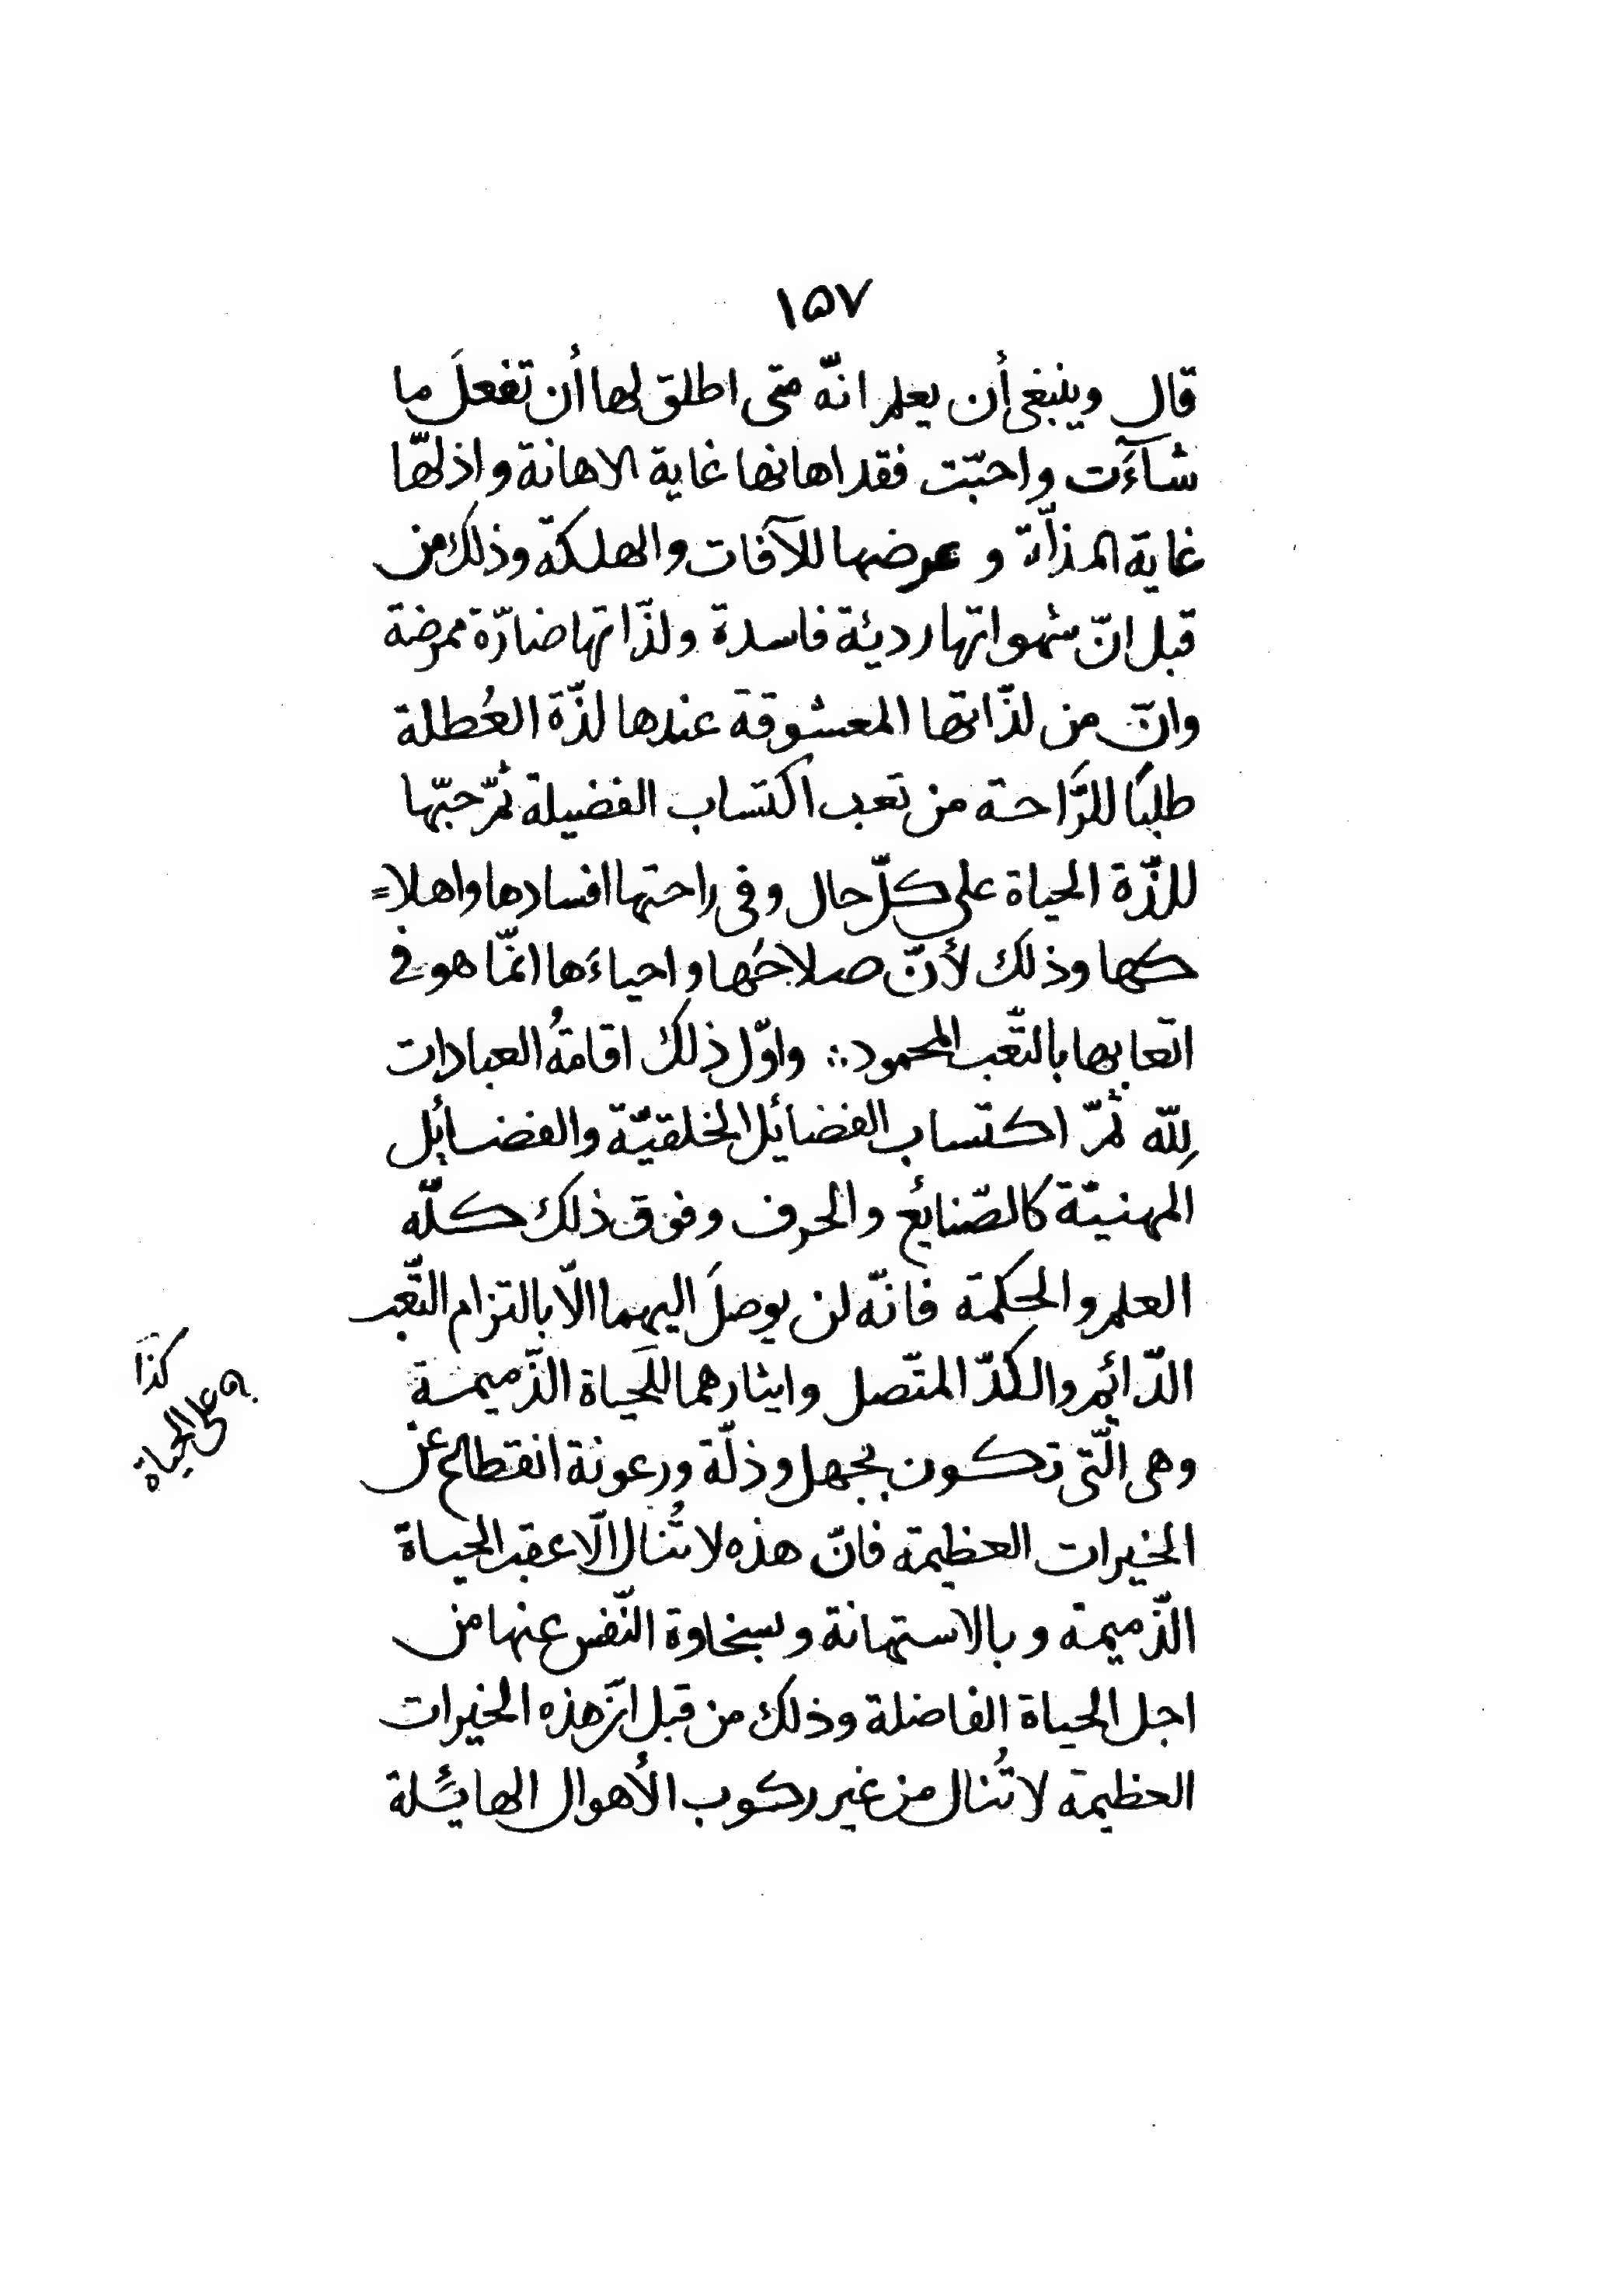 ١۵٧
قال وينبغى أن يعلم انّه متى اطلق لها أن تفعلَ ما
شآءَت واحبّت فقد اهانها غاية الاهانة واذلّها
غاية المذلّة و عرضها للآفات والهلكة وذلك من
قبل انّ شهواتها رديئة فاسدة ولذّاتها ضارّة ممرضة
وانّ من لذّاتها المعشوقة عندها لذّة العُطلة
طلبًا للرَّاحة من تعب اكتساب الفضيلة ثمّ حبّها
للذّة الحياة على كلّ حال وفى راحتها افسادها واهلا=
كها وذلك لأنّ صلاحَها واحياءَها انّما هو فى
اتعابها بالتّعب المحمود ∴ واوّل ذلك اقامةُ العبادات
لِلّه ثُمّ اكتساب الفضائل الخلقيّة والفضايل
المهنيّة كالصّنايع والحرف وفوق ذلك كلّه
العلم والحكمة فانّه لن يوصلَ اليهما الّا بالتزام التّعب
الدّائم والكدّ المتّصل وايثارهما للَحياة الذّميمة
وهى الّتى تكون بجهل وذلّة ورعونة انقطاع عن
الخيرات العظيمة فانّ هذه لا تُنال الّا عقب الحياة
الذّميمة و بالاستهانة وبسخاوة النّفس عنها من
اجل الحياة الفاضلة وذلك من قبل انّ هذه الخيرات
العظيمة لا تُنال من غير ركوب الأهوال الهائلة
كذا
على الحياة